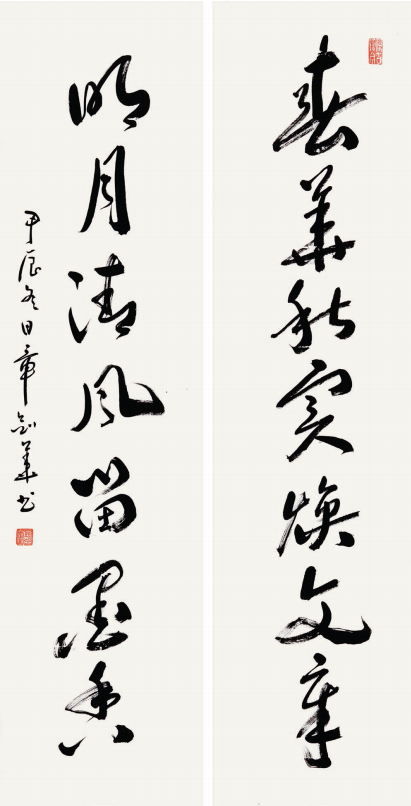 春华秋实焕文章
明月清风留墨香
甲辰冬日章剑华书